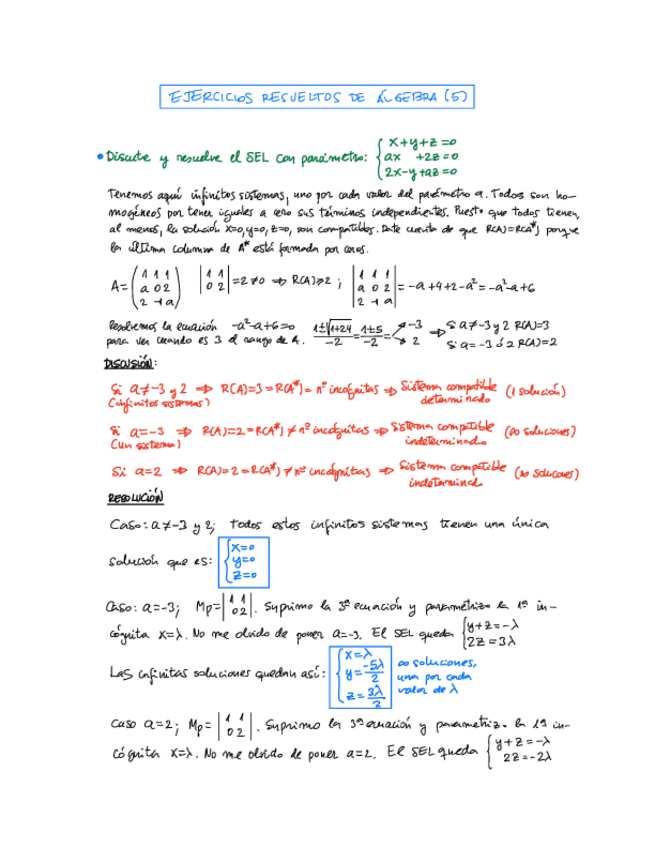 EJERCICIOS RESUELTOS DE ÁLGEBRA (5)
• Discute y resuelve el SEL con parámetro: { x+y+z=0
ax +2z=0
2x-y+az=0
Tenemos aquí infinitos sistemas, uno por cada valor del parámetro a. Todos son ho-
mogéneos por tener iguales a cero sus términos independientes. Puesto que todos tienen,
al menos, la solución x=0, y=0, z=0, son compatibles. Date cuenta de que R(A)=R(A*) porque
la última columna de A* está formada por ceros.
A= ( 1 1 1
a 0 2
2 -1 a ) | 1 1
0 2 | =2≠0 ⇒ R(A)≥2 ; | 1 1 1
a 0 2
2 -1 a | = -a+4+2-a²=-a²-a+6
Resolvemos la ecuación -a²-a+6=0 1±√1+24/-2 = 1±5/-2 = -3 ⇒ Si a≠-3 y 2 R(A)=3
para ver cuando es 3 el rango de A. 2 Si a=-3 ó 2 R(A)=2
DISCUSIÓN:
Si a≠-3 y 2 ⇒ R(A)=3=R(A*)= nº incógnitas ⇒ Sistema compatible (1 solución)
(infinitos sistemas) determinado
Si a=-3 ⇒ R(A)=2=R(A*)≠nº incógnitas ⇒ Sistema compatible (∞ soluciones)
(un sistema) indeterminado
Si a=2 ⇒ R(A)=2=R(A*)≠nº incógnitas ⇒ Sistema compatible (∞ soluciones)
indeterminad.
RESOLUCIÓN
Caso: a≠-3 y 2; Todos estos infinitos sistemas tienen una única
solución que es: { x=0
y=0
z=0
Caso: a=-3; Mp= | 1 1
0 2 |. Suprimo la 3ª ecuación y parametrizo la 1ª in-
cógnita x=λ. No me olvido de poner a=-3. El SEL queda { y+z=-λ
2z=3λ
Las infinitas soluciones quedan así: { x=λ
y=-5λ/2
z=3λ/2
∞ soluciones,
una por cada
valor de λ
Caso a=2; Mp= | 1 1
0 2 |. Suprimo la 3ª ecuación y parametriz. la 1ª in-
cógnita x=λ. No me olvido de poner a=2. El SEL queda { y+z=-λ
2z=-2λ